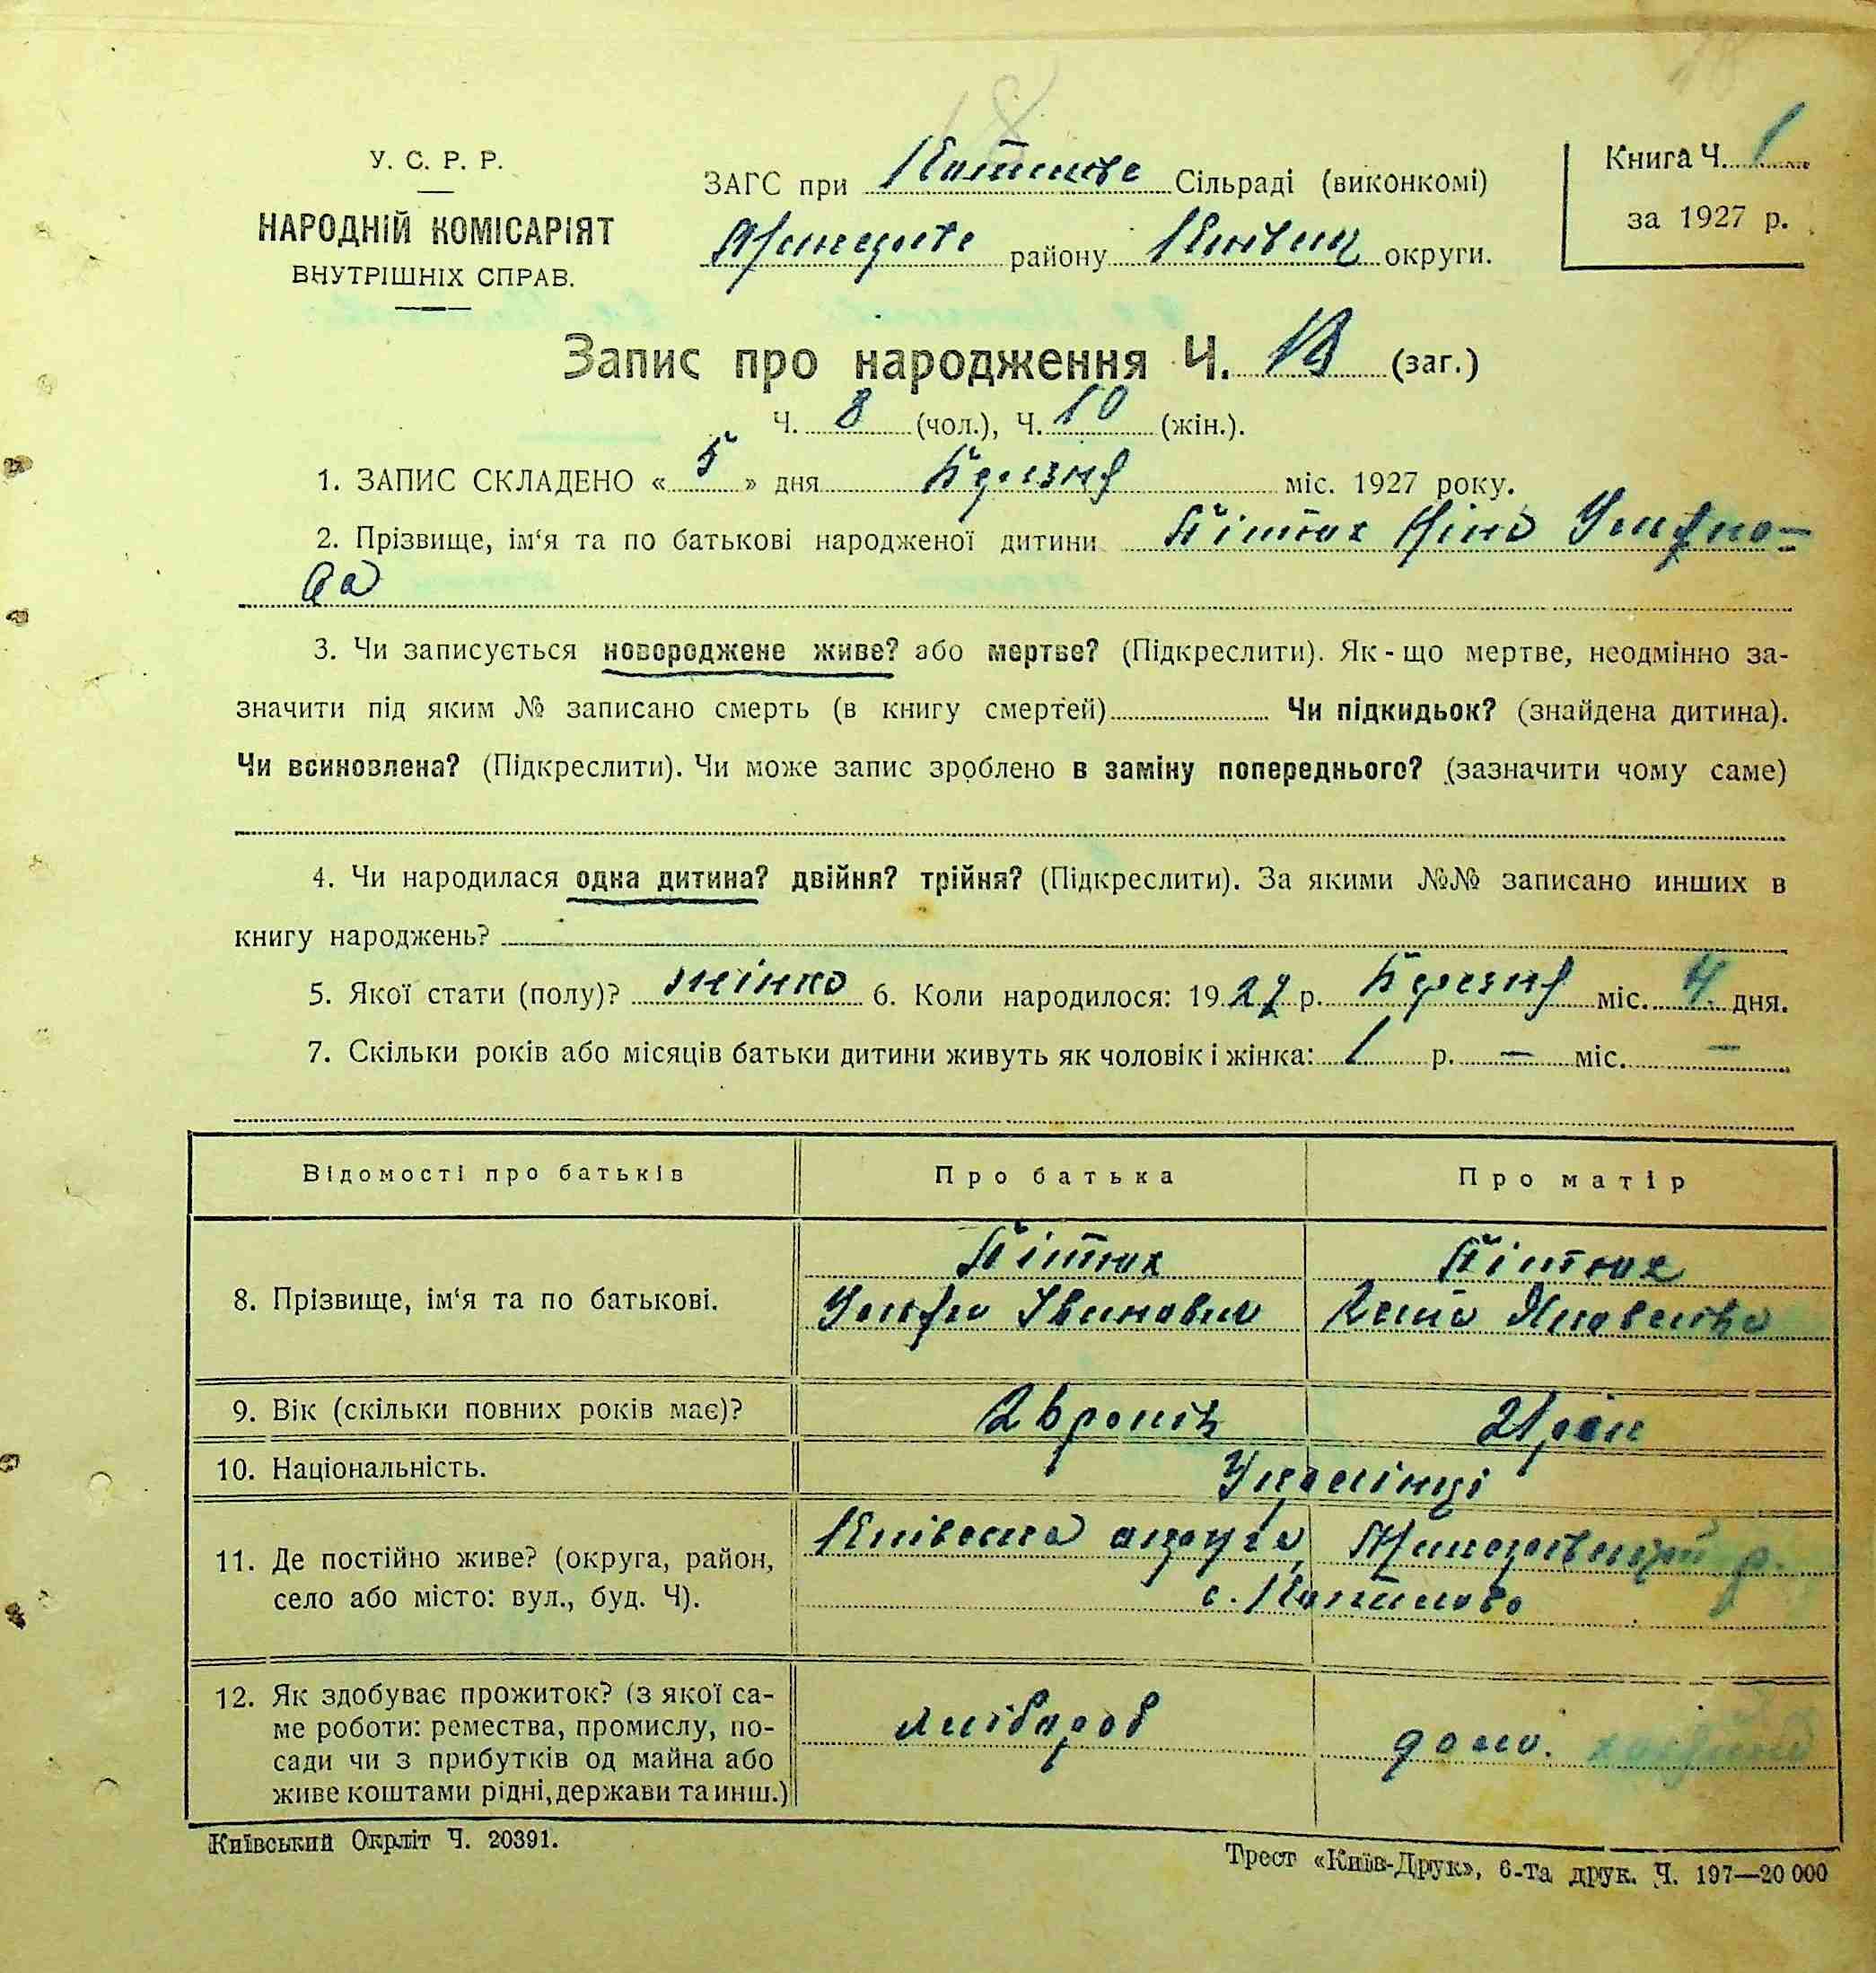 18
У. С. Р. Р.
НАРОДНІЙ КОМІСАРІЯТ
ВНУТРІШНІХ СПРАВ.
ЗАГС при Сільраді (виконкомі)
району округи.
Книга Ч. 1
за 1927 р.
Запис про народження Ч. 18 (заг.)
Ч. 8 (чол.), Ч. 10 (жін.).
1. ЗАПИС СКЛАДЕНО « 5 » дня Березня міс. 1927 року.
2. Прізвище, ім‘я та по батькові народженої дитини Пітюх Ніна
ва
3. Чи записується новороджене живе? або мертве? (Підкреслити). Як-що мертве, неодмінно за-
значити під яким № записано смерть (в книгу смертей) Чи підкидьок? (знайдена дитина).
Чи всиновлена? (Підкреслити). Чи може запис зроблено в заміну попереднього? (зазначити чому саме)
4. Чи народилася одна дитина? двійня? трійня? (Підкреслити). За якими №№ записано инших в
книгу народжень?
5. Якої стати (полу)? жінка 6. Коли народилося: 1927 р. Березня міс. 4 дня.
7. Скільки років або місяців батьки дитини живуть як чоловік і жінка: 1 р. — міс. —
Відомості про батьків
Про батька
Про матір
8. Прізвище, ім‘я та по батькові.
Пітюх
Іванович
Пітюх
Яковенко
9. Вік (скільки повних років має)?
26 років
21 рік
10. Національність.
Українці
11. Де постійно живе? (округа, район,
село або місто: вул., буд. Ч).
Київська округа, р.
с.
12. Як здобуває прожиток? (з якої са-
ме роботи: ремества, промислу, по-
сади чи з прибутків од майна або
живе коштами рідні, держави та инш.)
хлібороб
дом. хазяйка
Київський Окрліт Ч. 20391.
Трест «Київ-Друк», 6-та друк. Ч. 197—20 000